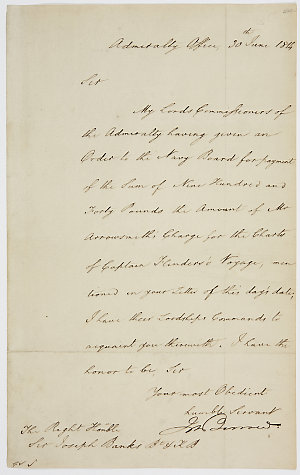 Admiralty Office, 30th June 1814
Sir
My Lords Commissioners of
the Admiralty having given an
Order to the Navy Board for payment
of the Sum of Nine Hundred and
Forty Pounds the Amount of Mr
Arrowsmith's Charge for the Charts
of Captain Flinders's Voyage, men
tioned in your Letter of this day's date,
I have their Lordships Commands to
acquaint you therewith. I have the
honor to be Sir
Your most Obedient
humble Servant
Jn Barrow
The Right Honble
Sir Joseph Banks Bt & K B